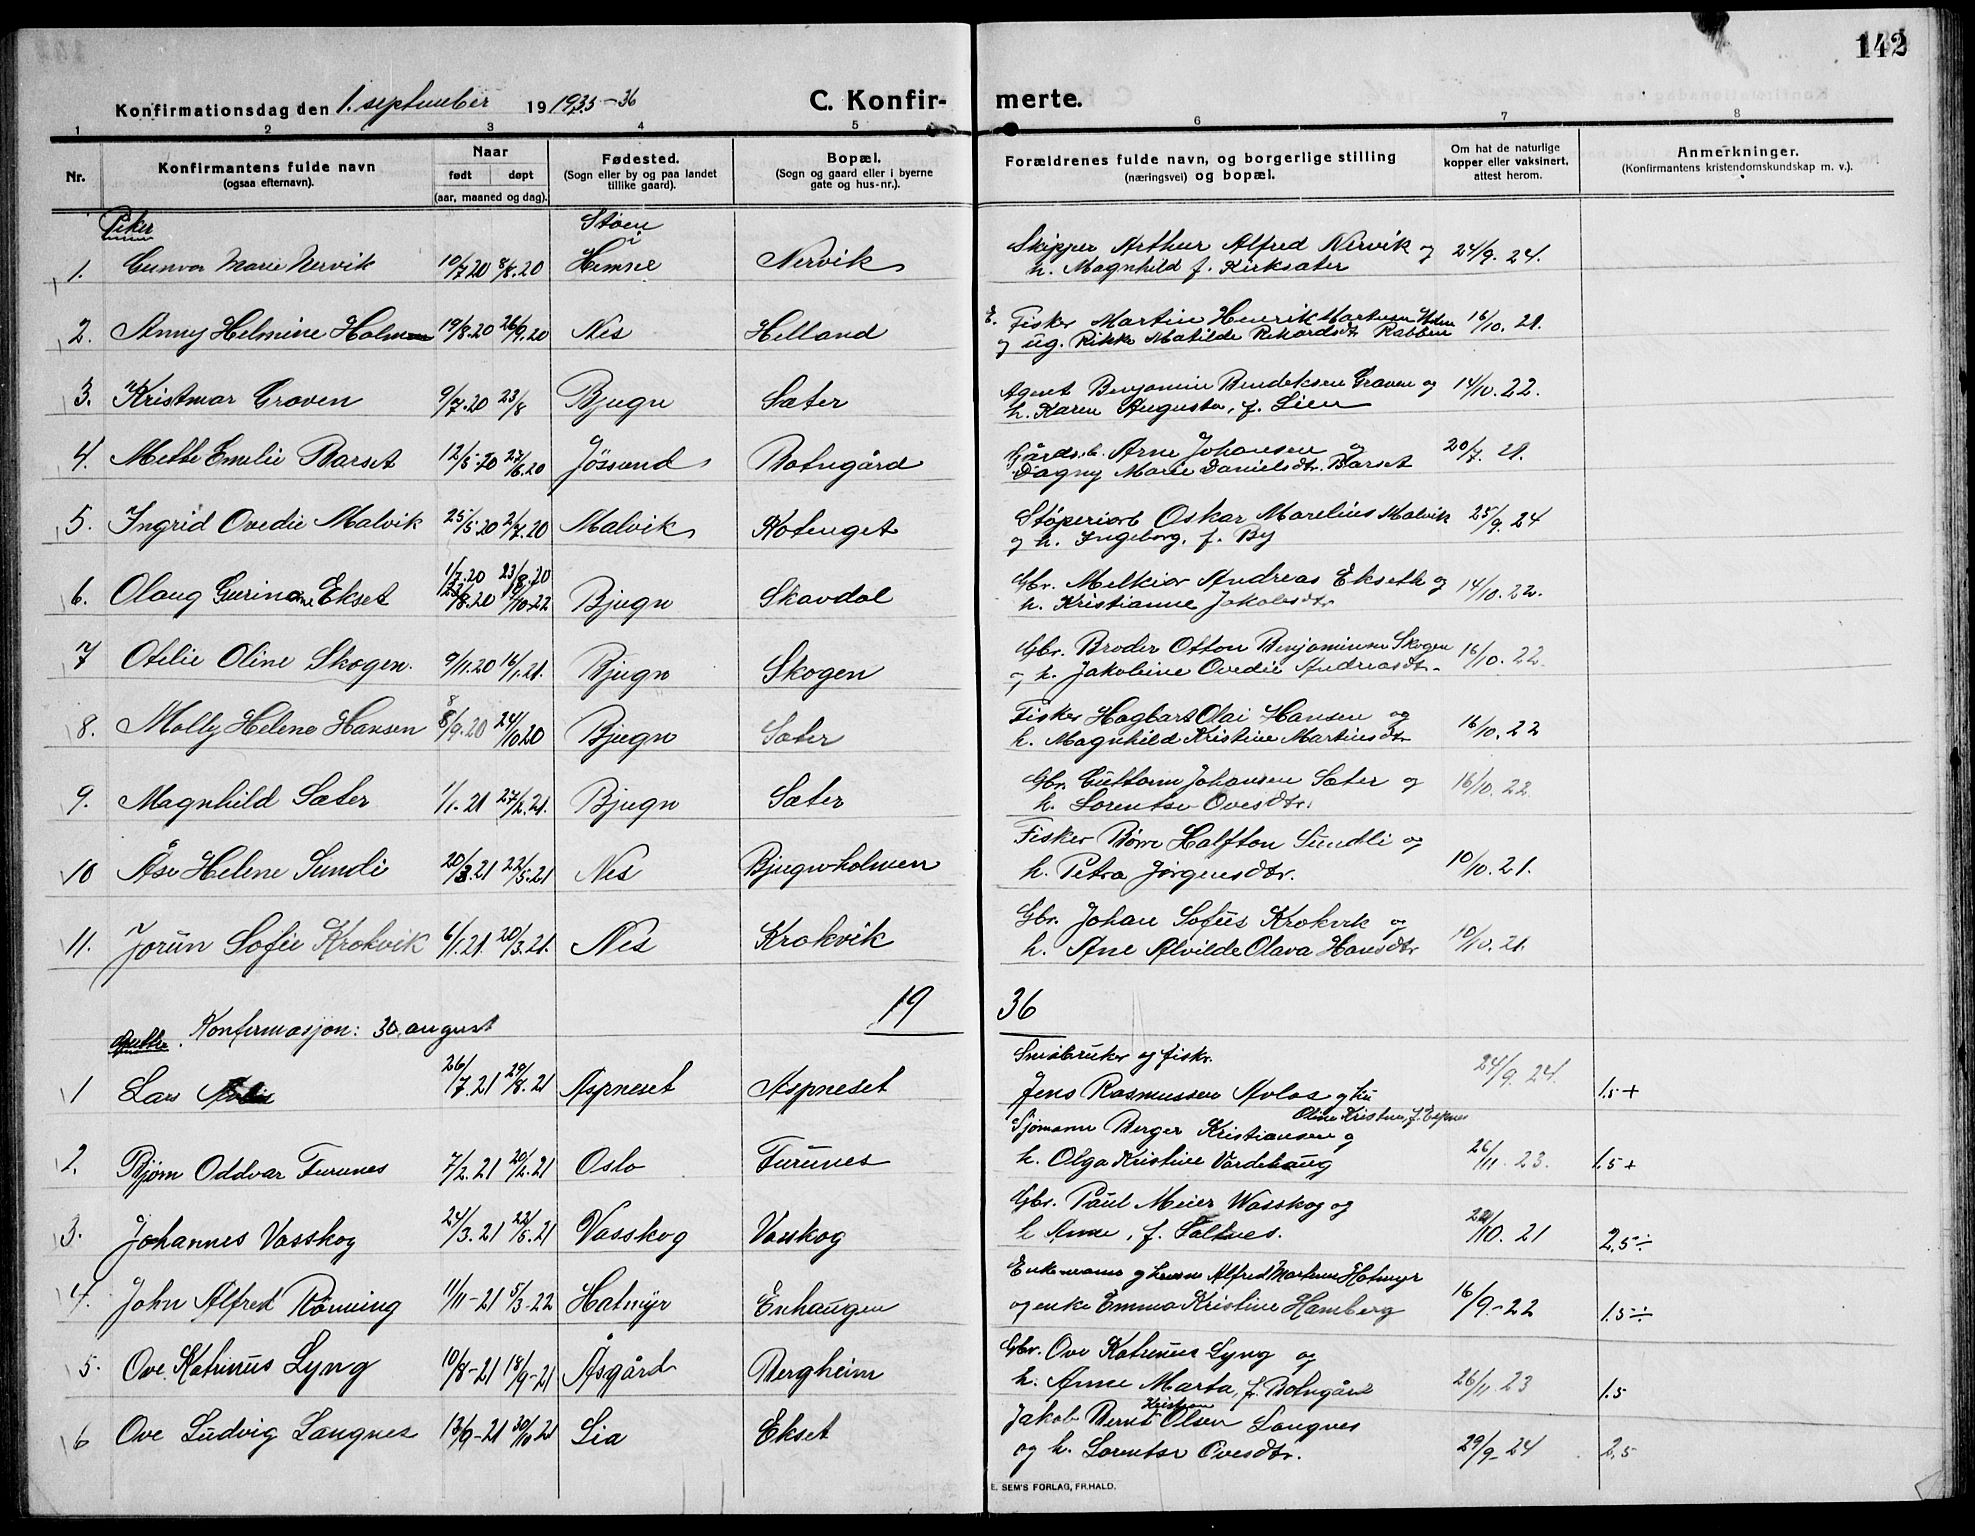 142
Konfirmationsdag den 1. september 19 1935-36 C. Konfir- merte.
1 2 3 4 5 6 7 8
Nr. Konfirmantens fulde navn (ogsaa efternavn). Naar født døpt (aar, maaned og dag). Fødested. (Sogn eller by og paa landet tillike gaard). Bopæl. (Sogn og gaard eller i byerne gate og hus-nr.). Forældrenes fulde navn, og borgerlige stilling (næringsvei) og bopæl. Om hat de naturlige kopper eller vaksinert, attest herom. Anmerkninger. (Konfirmantens kristendomskundskap m. v.).
Piker Støen i
1. Gunvor Marie Nervik 10/7.20 8/8.20 Hemne Nervik Skipper Arthur Alfred Nervik og 24/9.24.
h. Magnhild f. Kirksæter
2. Anny Helmine Holm 19/8.20 26/9.20 Nes Helland E. Fisker Martin Henrik Martinsen 16/10.21.
og ug. Rikke Matilde Rikardsdtr Rabben
3. Kristmar Graven 9/7.20 23/8 Bjugn Sæter Agent Benjamin Bendiksen Graven og 14/10.22.
h. Karen Augusta, f. Lien
4. Mette Emelie Barset 12/5-20 27/6.20 Jössund Botngård Gårdsb. Arne Johansen og 20/7.21.
Dagny Marie Danielsdtr. Barset
5. Ingrid Ovedie Malvik 25/5 20 2/7.20 Malvik Kotenget Støperiarb Oskar Marelius Malvik 25/9.24
og h. Ingeborg, f. By
1/7.20 23/8.20
6. Olaug Gurine Ekset 8.20 10-22 Bjugn Skavdal Gbr. Melkior Andreas Ekseth og 14/10.22.
h. Kristianne Jakobsdtr
7 Otelie Oline Skogen. 9/11.20 16/1.21. Bjugn Skogen Gbr. Broder Otton Benjaminsen Skogen 16/10.22.
og h. Jakobine Ovedie Andreasdtr.
8. Molly Helene Hansen 8/9.20 24/10 20 Bjugn Sæter Fisker Hagbart Olai Hansen og 16/10.22
h. Magnhild Kristine Martinsdtr
9. Magnhild Sæter 1/1.21 27/2.21. Bjugn Sæter Gbr. Guttorm Johansen Sæter og 16/10.22
h. Lorentse Ovesdtr.
10 Åse Helene Sundli 20/3.21 22/5.21 Nes Bjugnholmen Fisker Børre Halfton Sundli og 10/10.21.
h. Petra Jørgensdtr.
11. Jorun Sofie Krokvik 6/1.21. 20/3.21. Nes Krokvik Gbr. Johan Sofus Krokvik og 10/10.21.
h. Ane Alvilde Olava Hansdtr
Konfirmasjon: 30. august 19 36
Gutter.
1 Lars 26/7.21 29/8.21 Aspneset Aspneset Småbruker og fisker. 24/9.24. 1.5+
Jens Rasmussen Avlos og hu
Oline Kristine, f. Espnes
2. Bjørn Oddvar Furunes 7/2.21 20/2.21 Oslo Furunes Sjømann Berger Kristiansen og 26/11.23. 1.5+
h. Olga Kristine Vardehaug
3. Johannes Vasskog 24/3.21 22/5.21 Vasskog Vasskog Gbr. Paul Meier Wasskog og 22/10.21 2,5÷
h Anne, f. Saltnes.
4. John Alfred Rönning 11/11-21 5/3-22 Hatmyr Enhaugen Enkemann Alfred Martinus Hatmyr 16/9.-22 1.5÷
og enke Emma Kristine Hamberg
5. Ove Katrinus Lyng 10/8-21 18/9-21 Åsgård Bergheim Gbr. Ove Katrinus Lyng og 26/11 23 1.5
h. Anne Marta, f. Botngård
6 Ove Ludvig Langnes 13/9-21 30/10 21 Lia Ekset Jakob Bernt Kristian Olsen Langnes 29/9-24 2,5
og h. Lorentse Ovesdtr.
E. SEM'S FORLAG, FR.HALD.